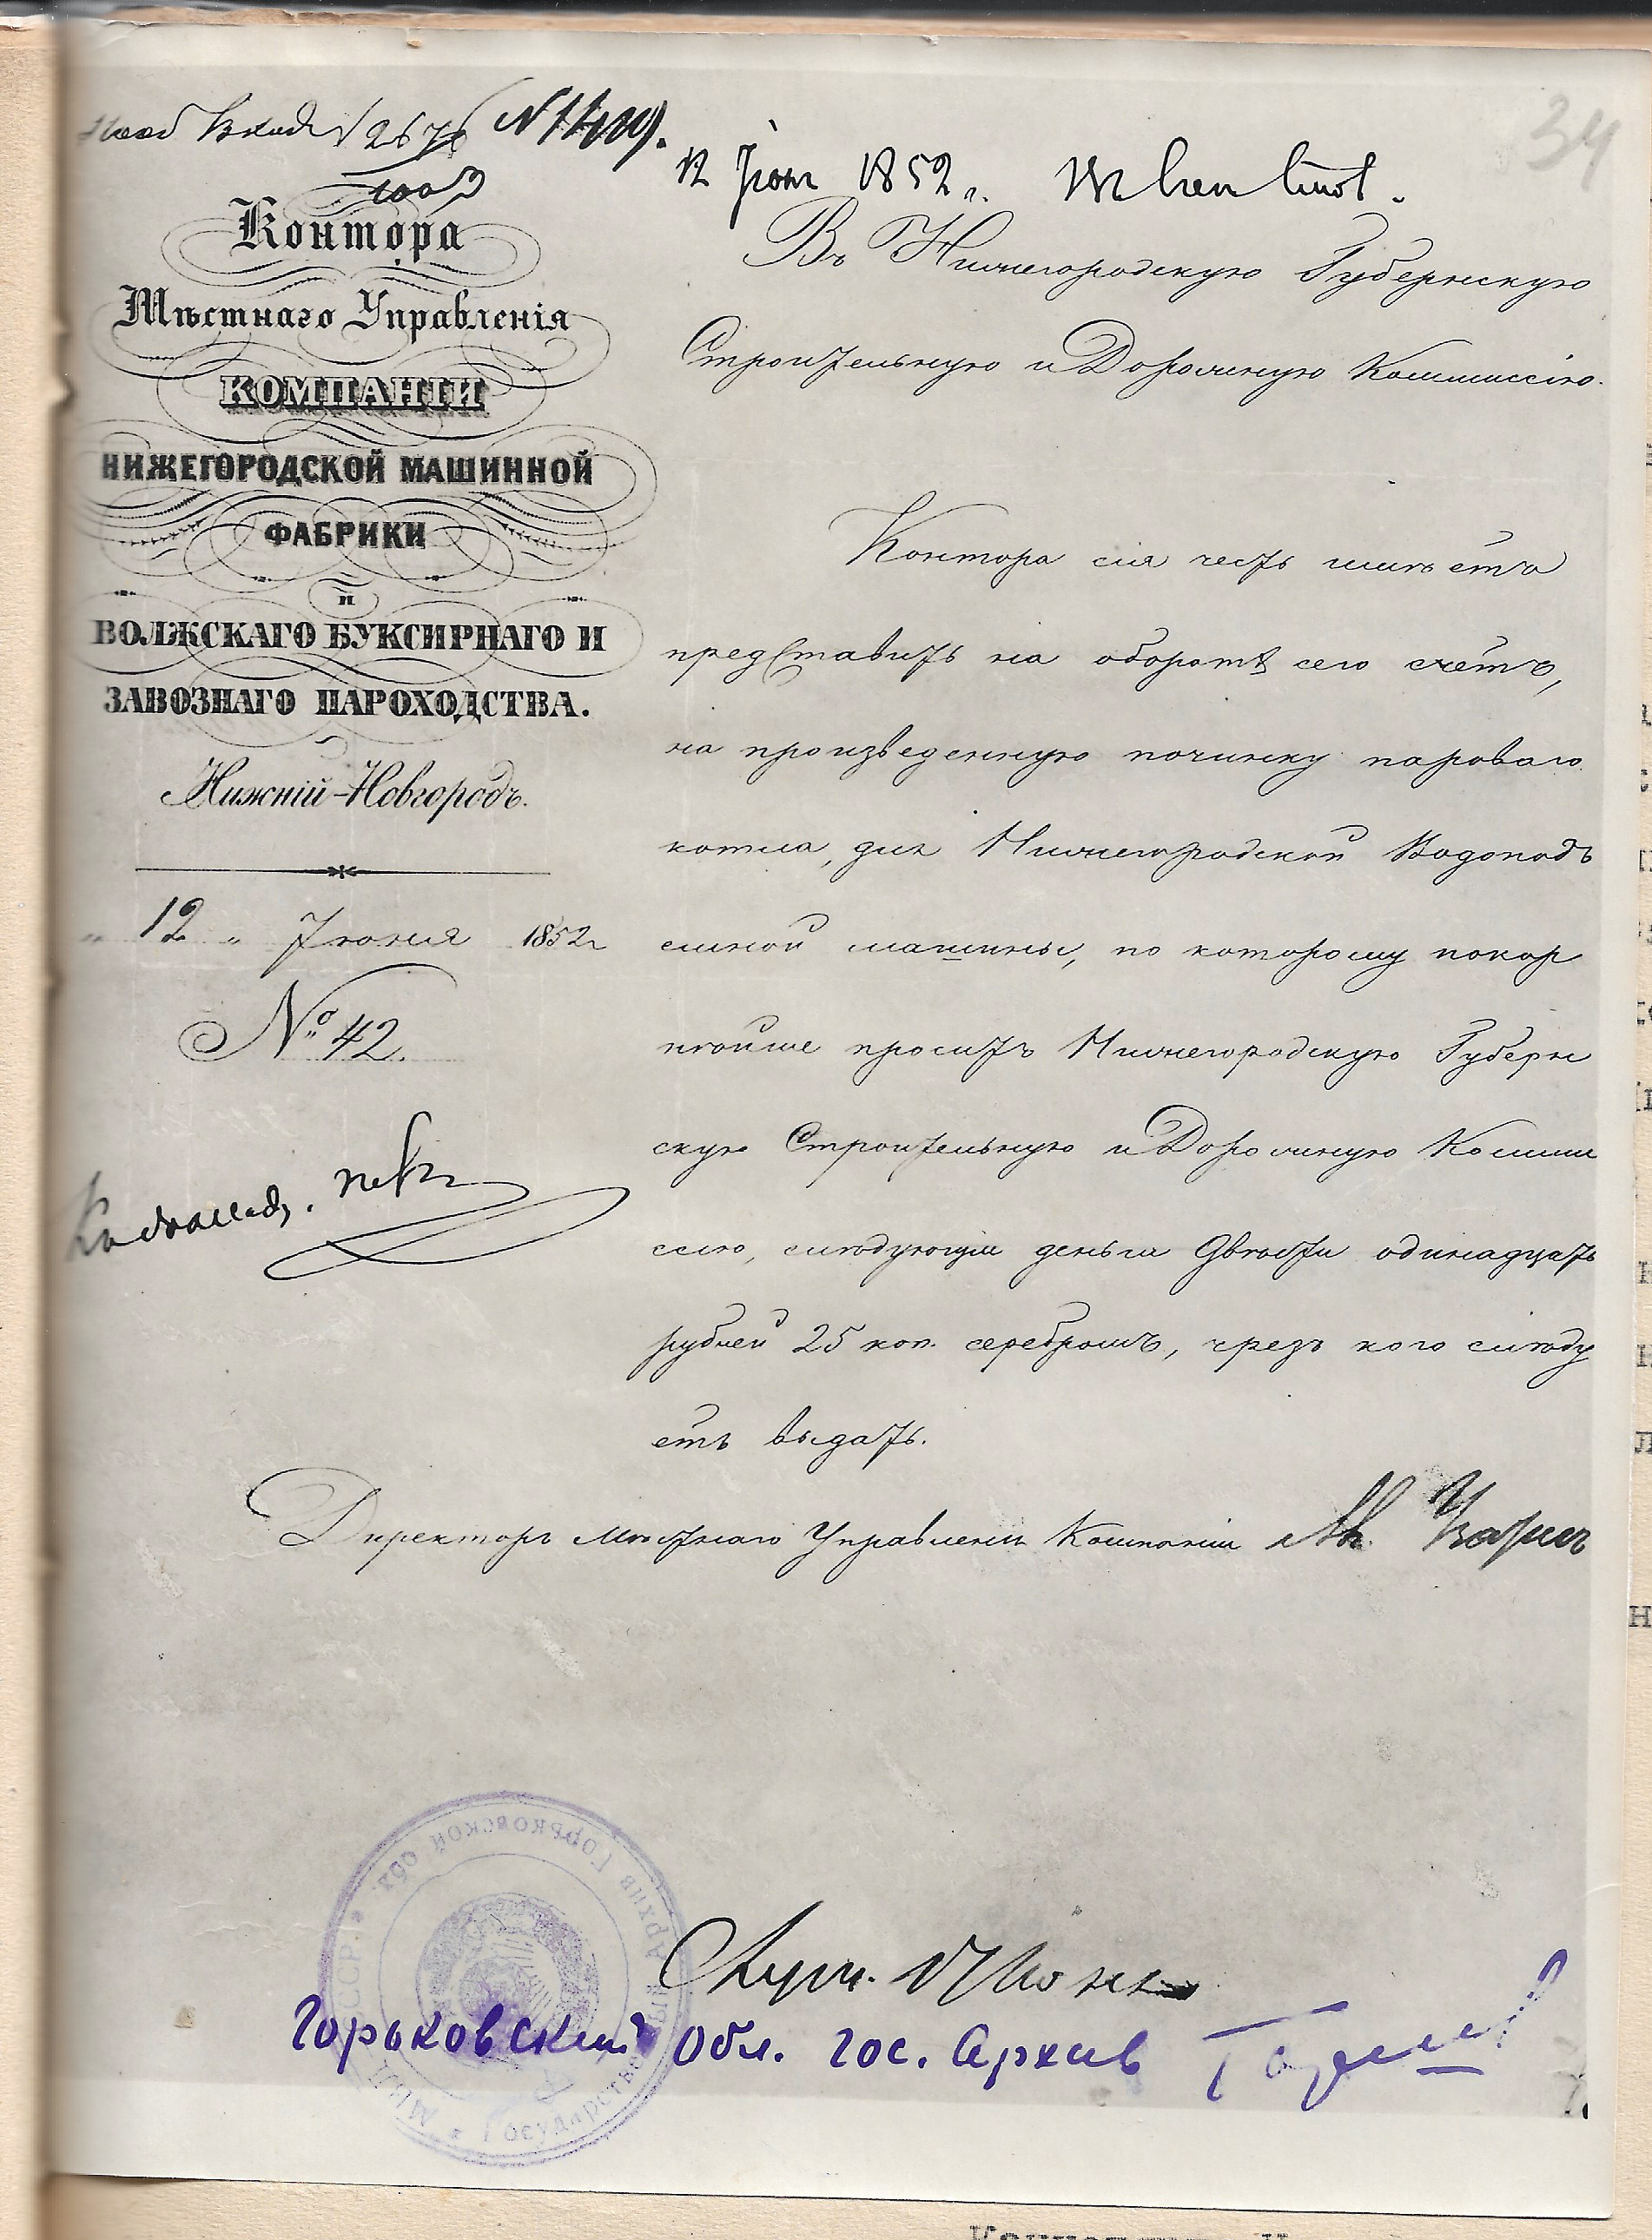 34
N 1409.
12 Июн 1852 г.
Контора
Мѣстнаго Управленія
КОМПАНІИ
НИЖЕГОРОДСКОЙ МАШИННОЙ
ФАБРИКИ
И
ВОЛЖСКАГО БУКСИРНАГО И
ЗАВОЗНАГО ПАРОХОДСТВА.
Нижній-Новгородъ.
„ 12 „ Іюня 1852 г
№ 42.
Въ Нижегородскую Губернскую
Строительную и Дорожную Коммиссію.
Контора сія честь имѣетъ
представить на оборотѣ сего счетъ,
на произведенную починку пароваго
котла, для Нижегородской Водоподъ
емной машины, по которому покор
нѣйше проситъ Нижегородскую Губерн
скую Строительную и Дорожную Комми
ссію, слѣдующіе деньги двѣсти одинадцать
рублей 25 коп. серебромъ, чрезъ кого слѣду
етъ выдать.
Директоръ Мѣстнаго Управленія Компаніи
Горьковский Обл. гос. Архив